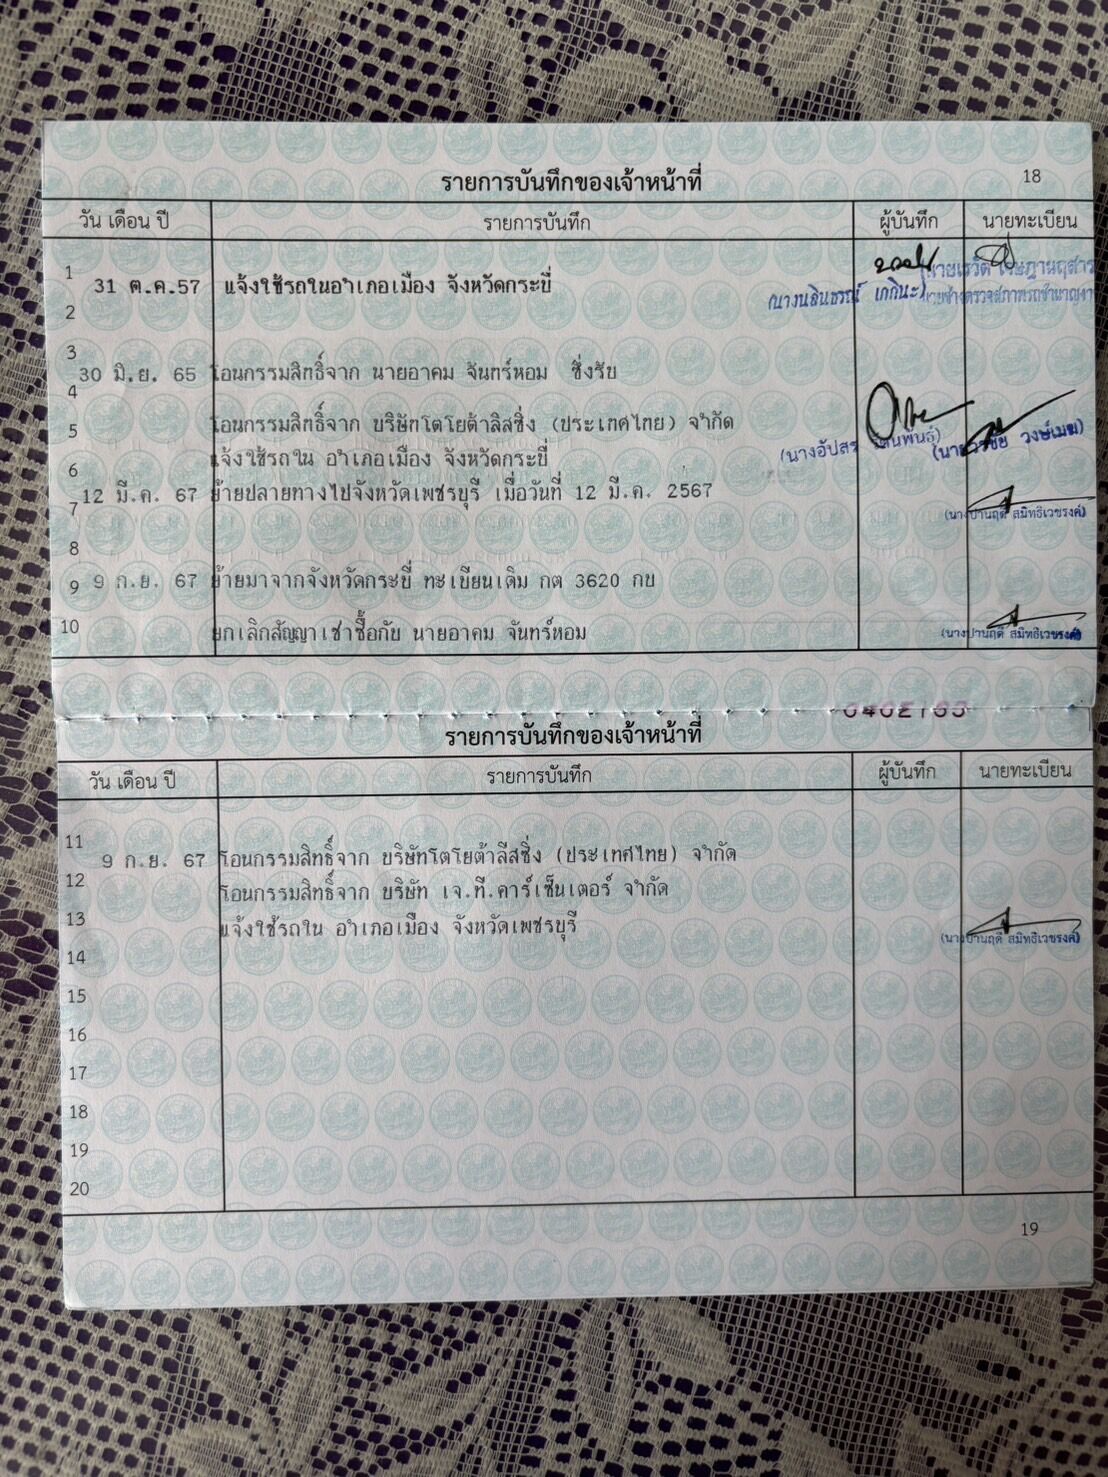 18
รายการบันทึกของเจ้าหน้าที่
วัน เดือน ปี รายการบันทึก ผู้บันทึก นายทะเบียน
1 31 ต.ค.57 แจ้งใช้รถในอำเภอเมือง จังหวัดกระบี่
2
3
30 มิ.ย. 65 โอนกรรมสิทธิ์จาก นายอาคม จันทร์หอม ซึ่งรับ
4
5 โอนกรรมสิทธิ์จาก บริษัทโตโยต้าลิสซิ่ง (ประเทศไทย) จำกัด
6 แจ้งใช้รถใน อำเภอเมือง จังหวัดกระบี่
(นางอัปสร
วงษ์เมฆ)
7 12 มี.ค. 67 ย้ายปลายทางไปจังหวัดเพชรบุรี เมื่อวันที่ 12 มี.ค. 2567
(นางปานฤดี สมิทธิเวชรงค์)
8
9 9 ก.ย. 67 ย้ายมาจากจังหวัดกระบี่ ทะเบียนเดิม กต 3620 กบ
10 ยกเลิกสัญญาเช่าซื้อกับ นายอาคม จันทร์หอม
(นางปานฤดี สมิทธิเวชรงค์)
รายการบันทึกของเจ้าหน้าที่
วัน เดือน ปี รายการบันทึก ผู้บันทึก นายทะเบียน
11 9 ก.ย. 67 โอนกรรมสิทธิ์จาก บริษัทโตโยต้าลีสซิ่ง (ประเทศไทย) จำกัด
12 โอนกรรมสิทธิ์จาก บริษัท เจ.ที.คาร์เซ็นเตอร์ จำกัด
13 แจ้งใช้รถใน อำเภอเมือง จังหวัดเพชรบุรี
(นางปานฤดี สมิทธิเวชรงค์)
14
15
16
17
18
19
20
19